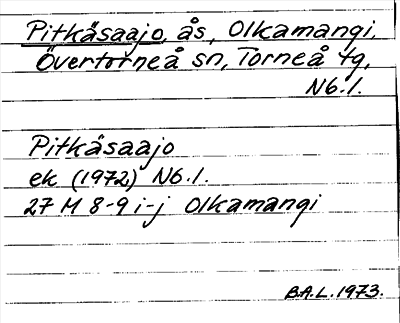 Pitkäsaajo, ås, Olkamangi,
Övertorneå sn, Torneå tg,
N6.1.
Pitkäsaajo
ek (1972) N6.1.
27 M 8-9 i-j Olkamangi
B.A.L. 1973.